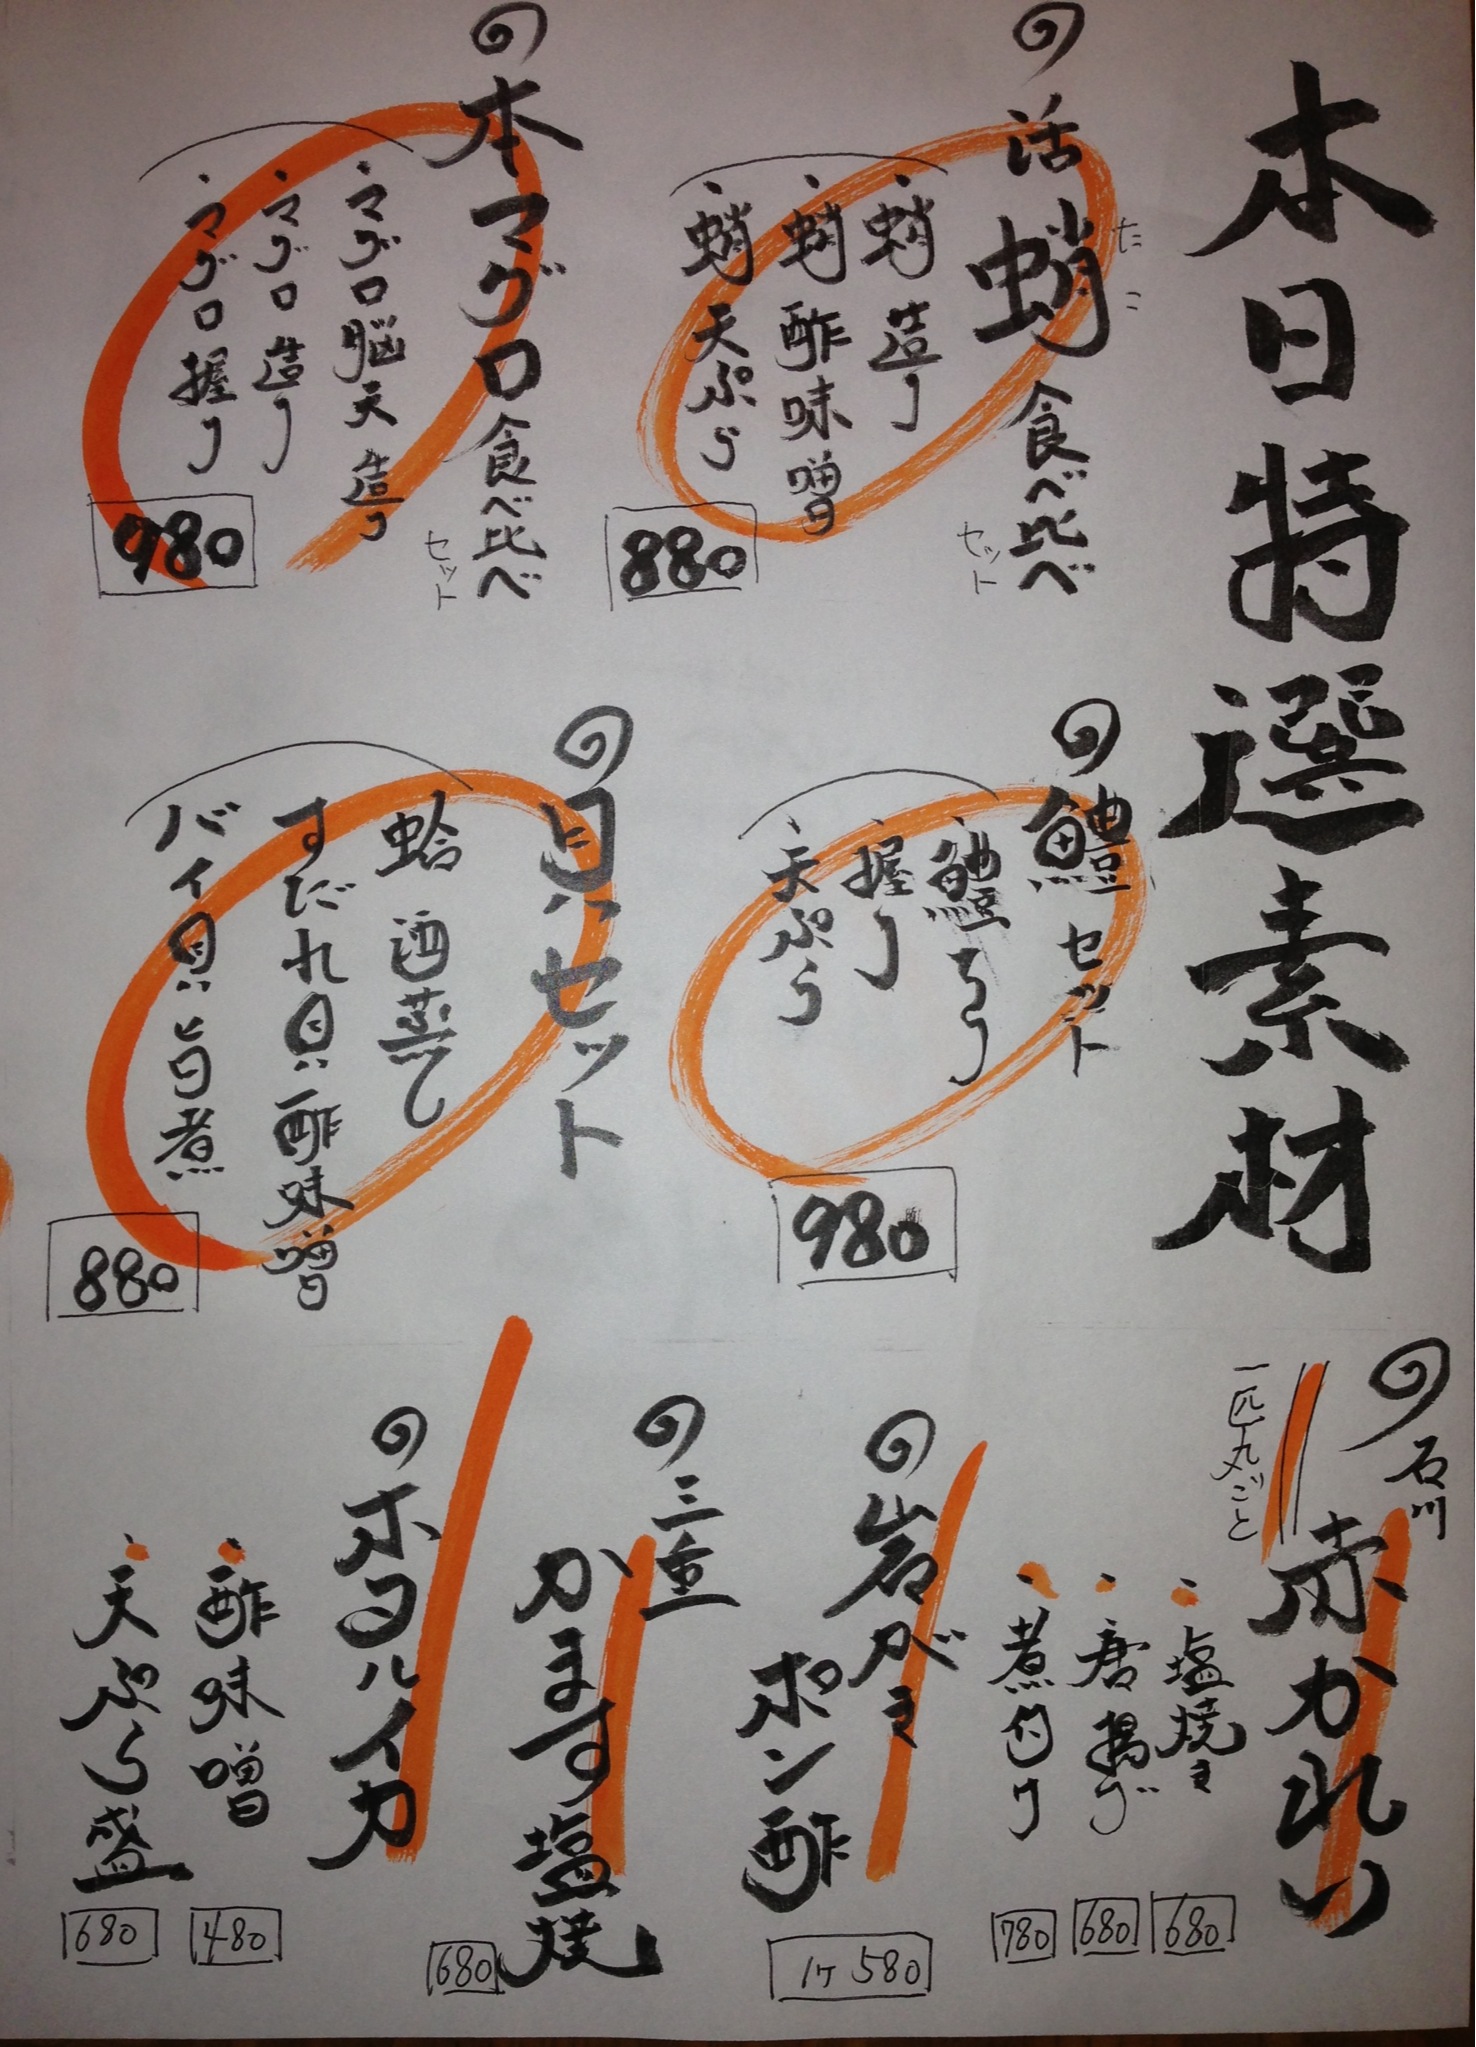 本日特選素材
活蛸食べ比べ
たこ
セット
・蛸造り
・蛸酢味噌
・蛸天ぷら
880
本マグロ食べ比べ
セット
・マグロ脳天造り
・マグロ造り
・マグロ握り
980
鱧セット
・鱧ちり
・握り
・天ぷら
980
貝セット
蛤酒蒸し
すだれ貝酢味噌
バイ貝旨煮
880
石川
赤かれい
一匹丸ごと
・塩焼き
680
・唐揚げ
680
・煮付け
780
岩がき
ポン酢
1ヶ580
三重
かます塩焼
680
ホタルイカ
・酢味噌
480
・天ぷら盛
680